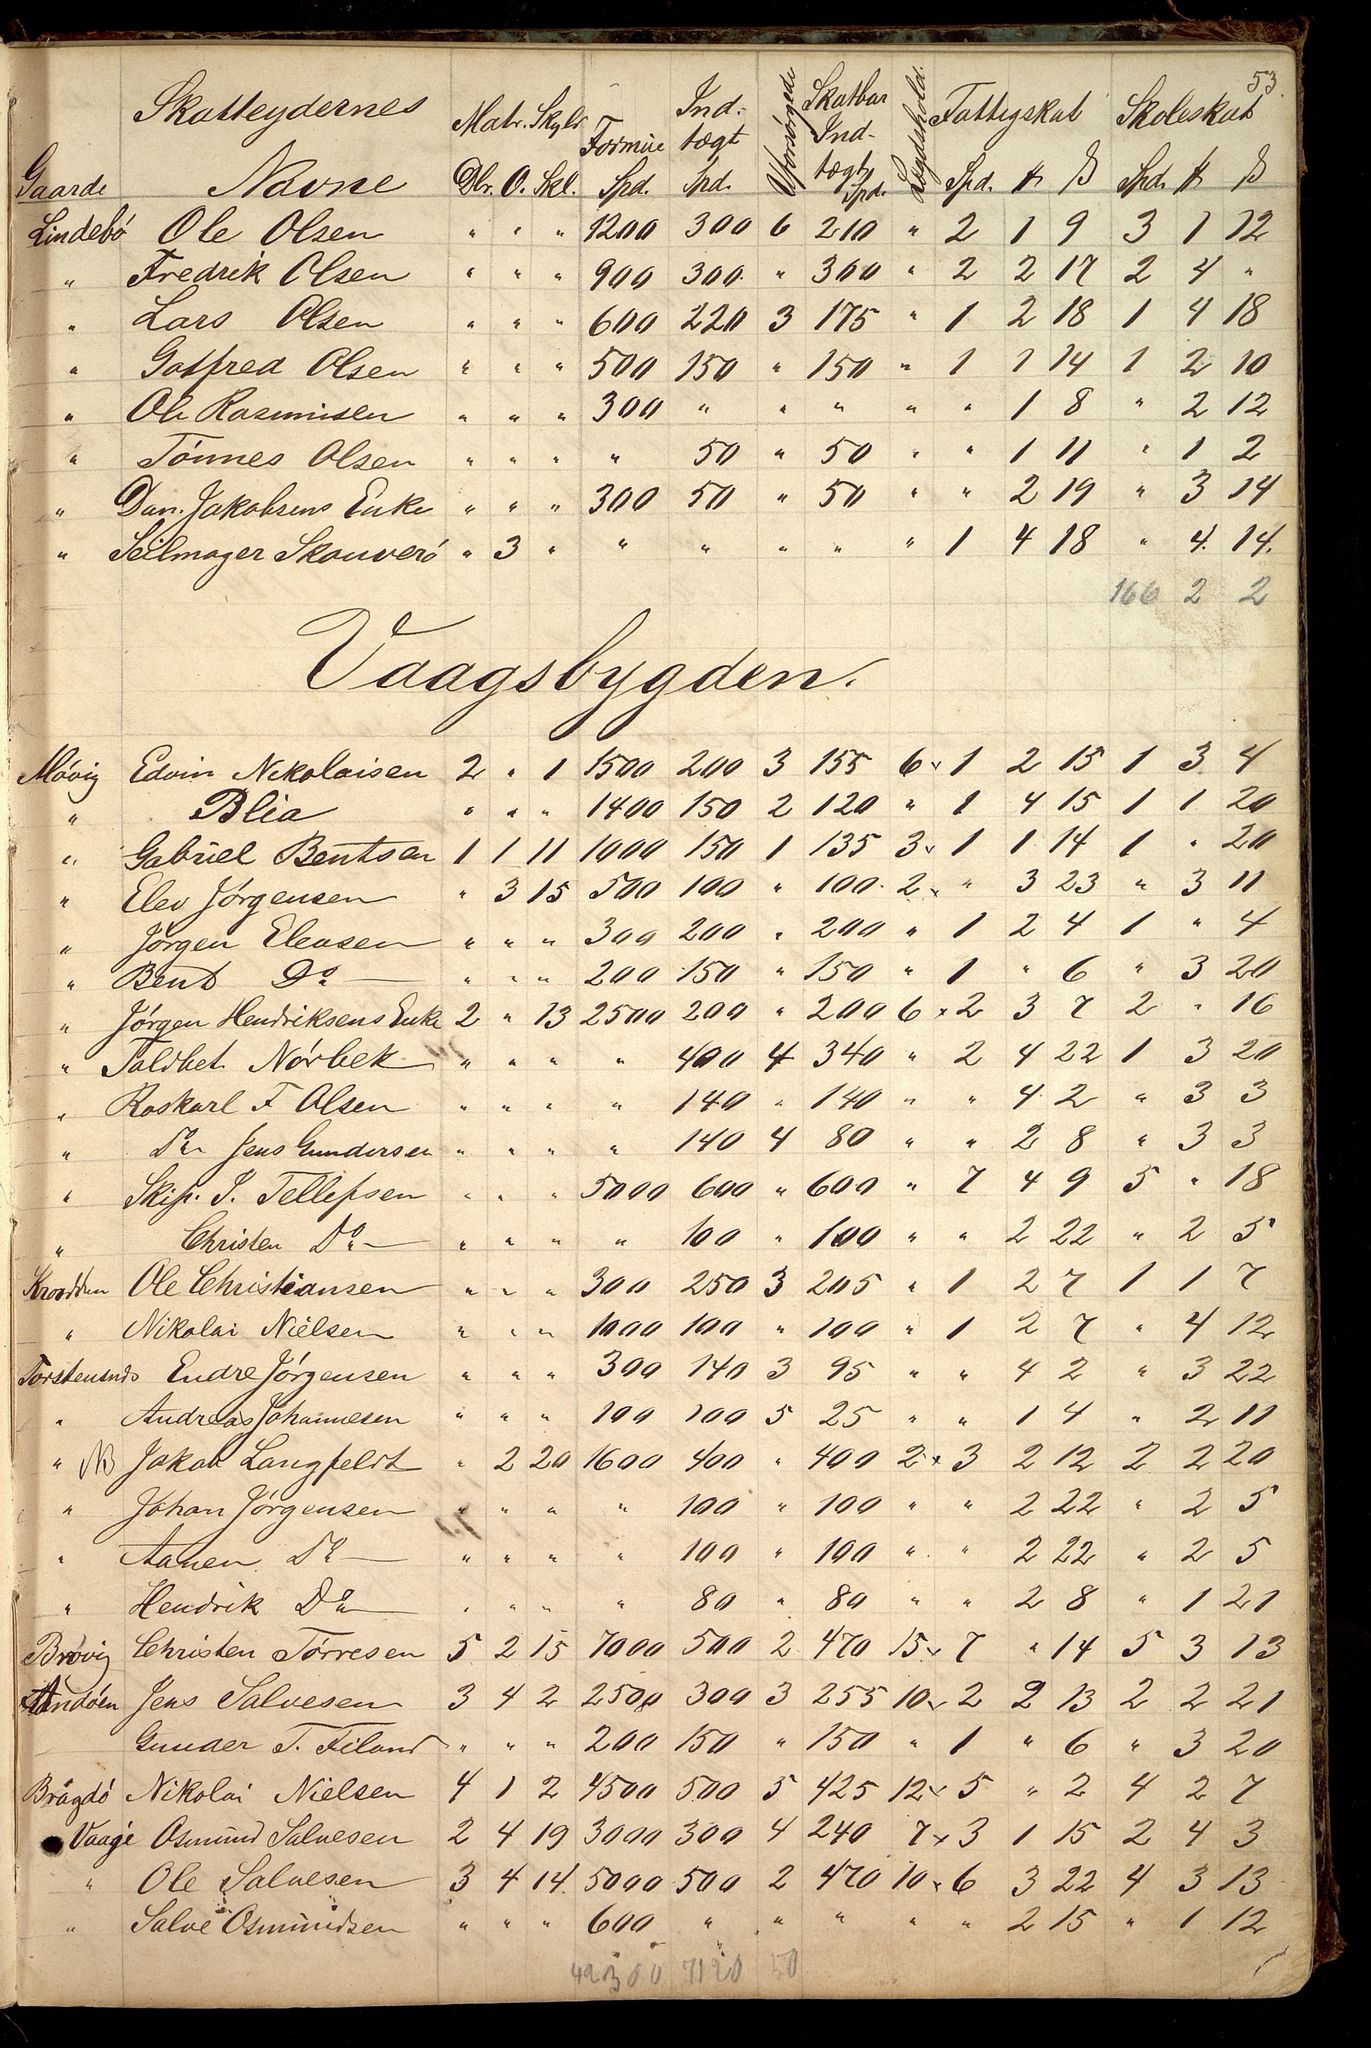 53.
Gaarde Skatteydernes Navne Matr. Skyld Dlr. O. Skl. Formue Spd. Indtægt Spd. Uforsørgede Skatbar Indtægt Spd. Lægdshold. Fattigskat Spd. ꝉ ß Skoleskat Spd. ꝉ ß
Lindebö Ole Olsen " " " 1200 300 6 210 " 2 1 9 3 1 12
" Fredrik Olsen " " " 900 300 " 300 " 2 2 17 2 4 "
" Lars Olsen " " " 600 220 3 175 " 1 2 18 1 4 18
" Gotfred Olsen " " " 500 150 " 150 " 1 1 14 1 2 10
" Ole Rasmusen " " " 300 " " " " " 1 8 " 2 12
" Tönnes Olsen " " " " 50 " 50 " " 1 11 " 1 2
" Dan. Jakobsens Enke " " " 300 50 " 50 " " 2 19 " 3 14
" Seilmager Skouverö " 3 " " " " " " 1 4 18 " 4. 14.
166 2 2
Vaagsbygden.
Mövig Edvin Nikolaisen 2 " 1 1500 200 3 155 6 x 1 2 15 1 3 4
" Blia " " " 1400 150 2 120 " 1 4 15 1 1 20
" Gabriel Bentsen 1 1 11 1000 150 1 135 3 x 1 1 14 1 " 20
" Elev Jörgensen " 3 15 500 100 " 100 2 x " 3 23 " 3 11
" Jörgen Elevsen " " " 300 200 " 200 " 1 2 4 1 " 4
" Bent Do " " " 200 150 " 150 " 1 " 6 " 3 20
" Jörgen Hendriksens Enke 2 " 13 2500 200 " 200 6 x 2 3 7 2 " 16
" Toldbet. Nörbek " " " " 400 4 340 " 2 4 22 1 3 20
" Roskarl F Olsen " " " " 140 " 140 " " 4 2 " 3 3
" Do Jens Gundersen " " " " 140 4 80 " " 2 8 " 3 3
" Skip. J. Tellefsen " " " 5000 600 " 600 " 7 4 9 5 " 18
" Christen Do " " " " 100 " 100 " " 2 22 " 2 5
Krodden Ole Christiansen " " " 300 250 3 205 " 1 2 7 1 1 7
" Nikolai Nielsen " " " 1000 100 " 100 " 1 2 7 " 4 12
Torstensnds Endre Jörgensen " " " 300 140 3 95 " " 4 2 " 3 22
" Andreas Johannesen " " " 100 100 5 25 " " 1 4 " 2 11
" NB Jakob Langfeldt " 2 20 1600 400 " 400 2 x 3 2 12 2 2 20
" Johan Jörgensen " " " " 100 " 100 " " 2 22 " 2 5
" Aanen Do " " " " 100 " 100 " " 2 22 " 2 5
" Hendrik Do " " " " 80 " 80 " " 2 8 " 1 21
Brövig Christen Törresen 5 2 15 7000 500 2 470 15 x 7 " 14 5 3 13
Andöen Jens Salvesen 3 4 2 2500 300 3 255 10 x 2 2 13 2 2 21
Gunder T. Filand " " " 200 150 " 150 " 1 " 6 " 3 20
Brågdö Nikolai Nielsen 4 1 2 4500 500 5 425 12 x 5 " 2 4 2 7
Vaage Osmund Salvesen 2 4 19 3000 300 4 240 7 x 3 1 15 2 4 3
" Ole Salvesen 3 4 14 5000 500 2 470 10 x 6 3 22 4 3 13
" Salve Osmundsen " " " 600 " " " " " 2 15 " 1 12
42300 7120 50